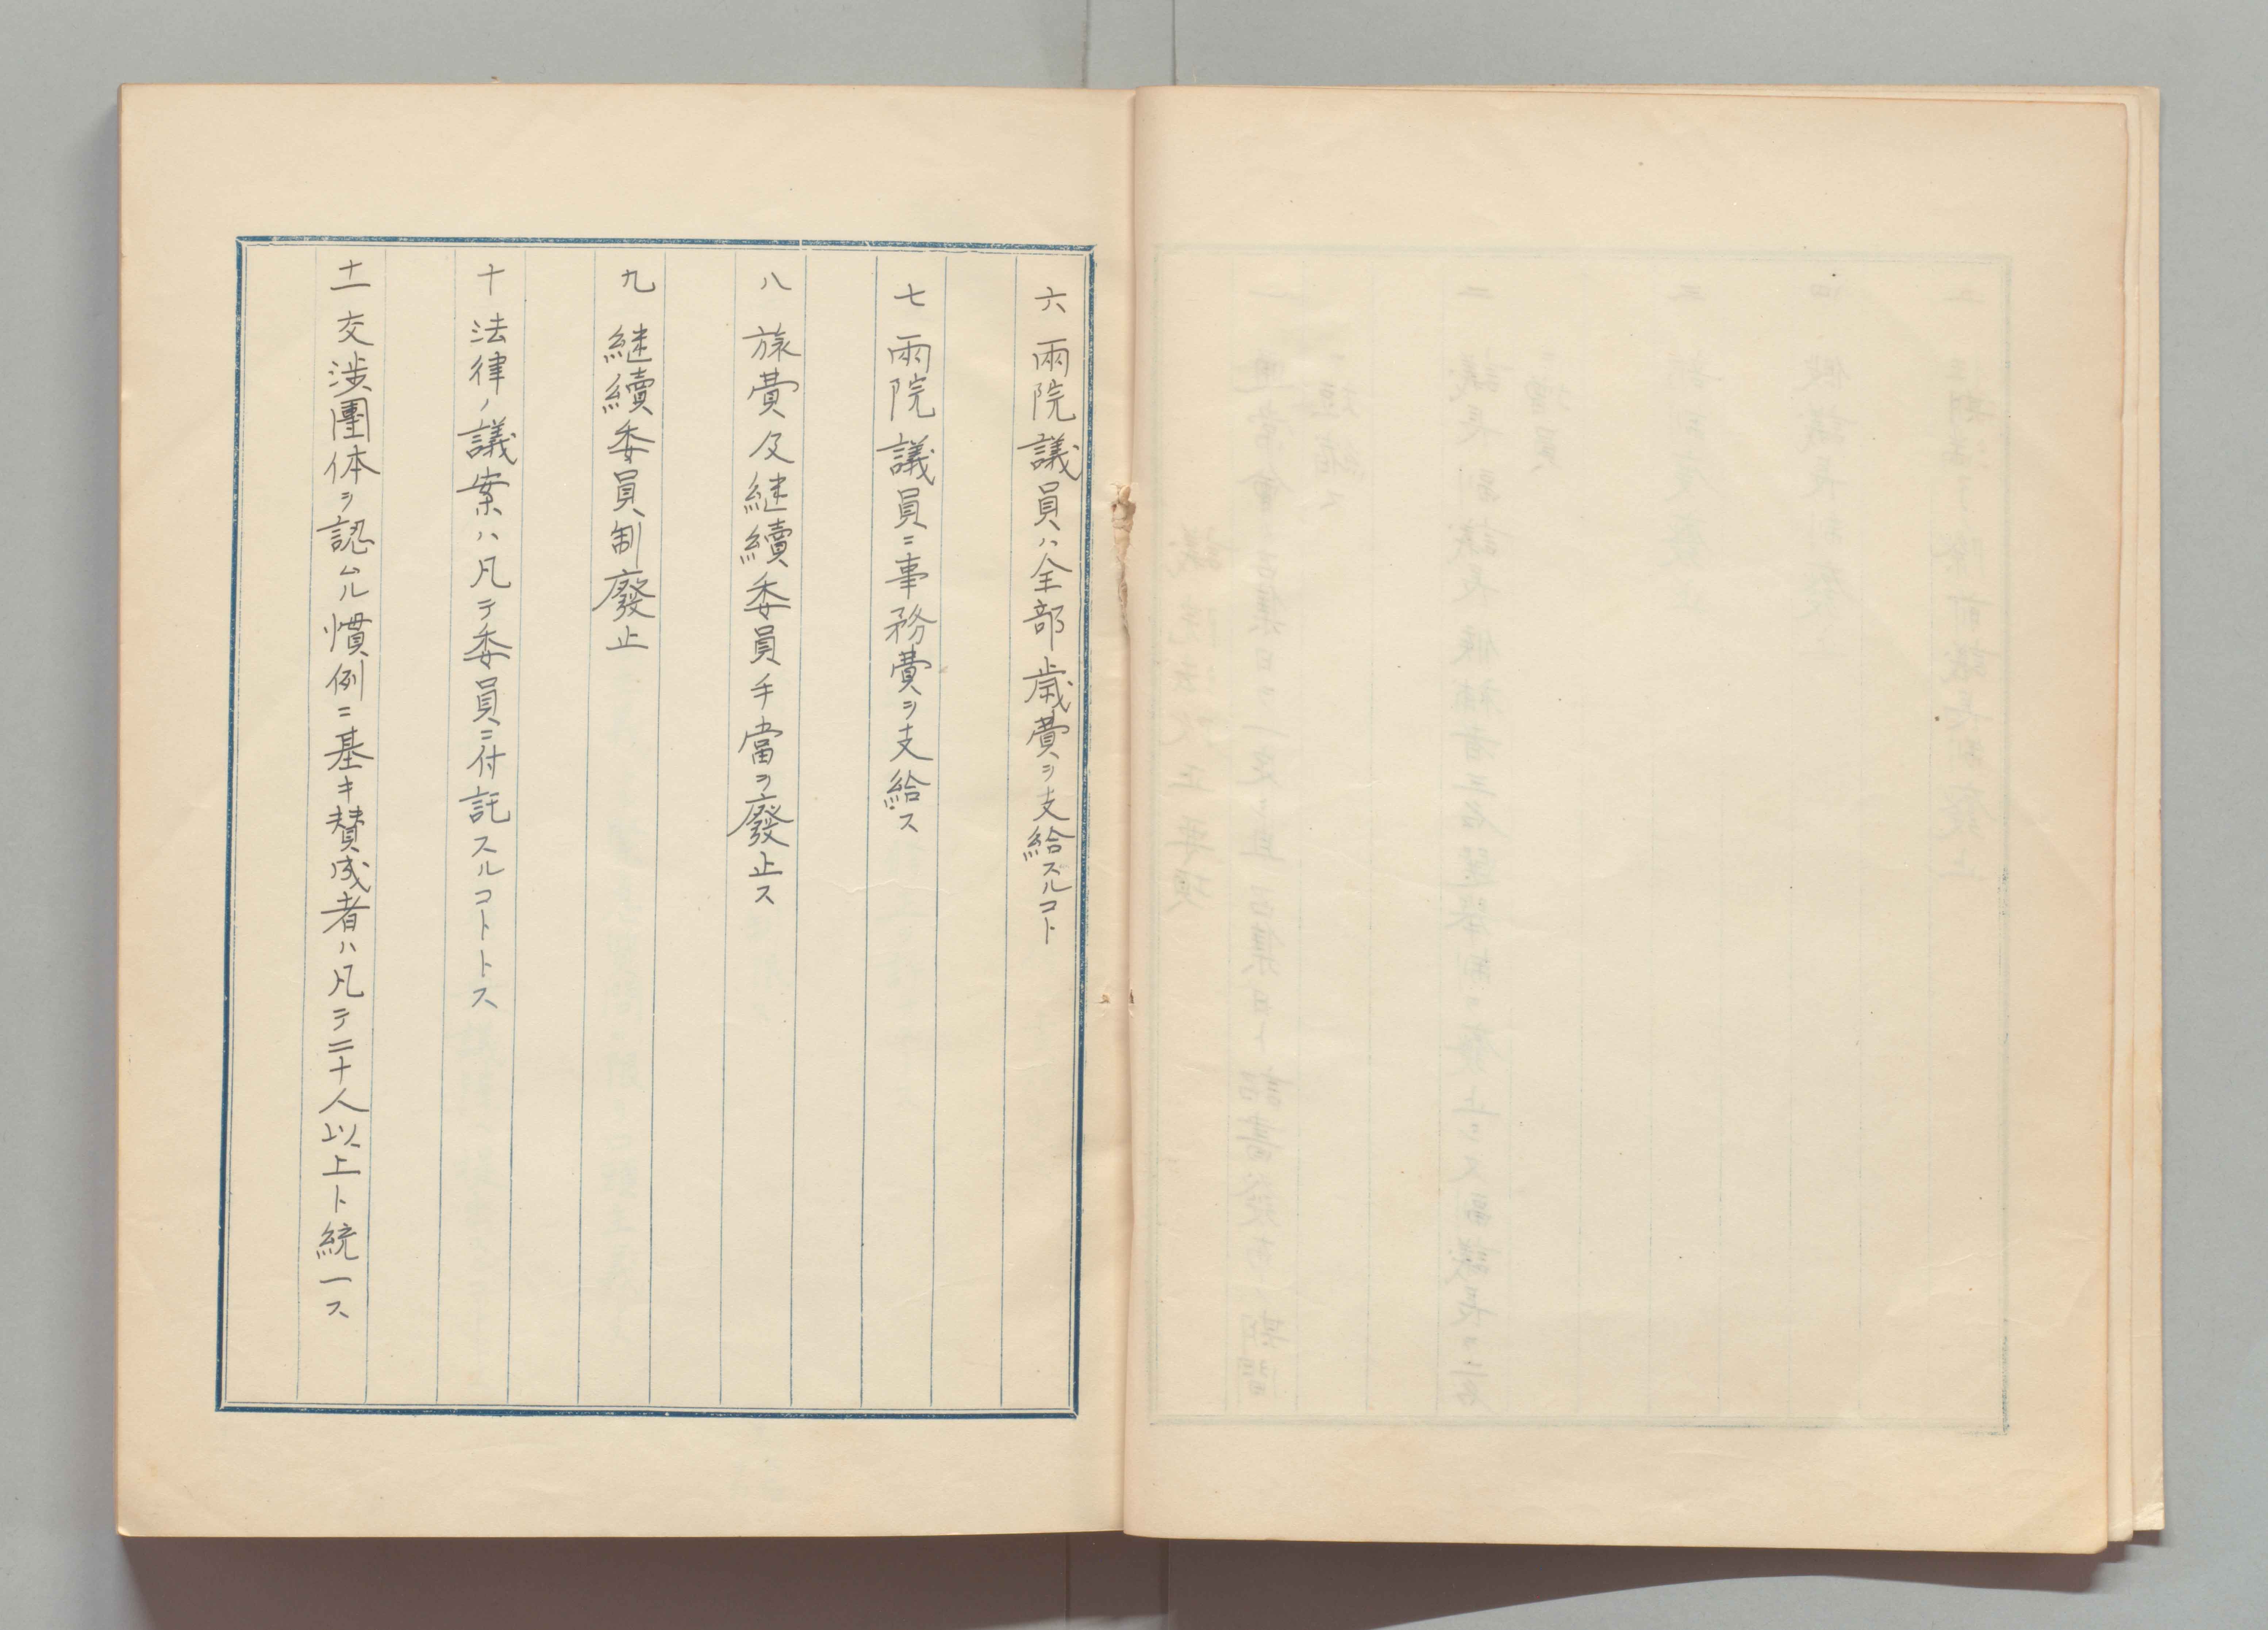 六 兩院議員ハ全部歳費ヲ支給スルコト
七 兩院議員ニ事務費ヲ支給ス
八 旅費及継續委員手當ヲ廢止ス
九 継續委員制廢止
十 法律ノ議案ハ凡テ委員ニ付託スルコトトス
十一 交渉團体ヲ認ムル慣例ニ基キ賛成者ハ凡テ二十人以上ト統一ス